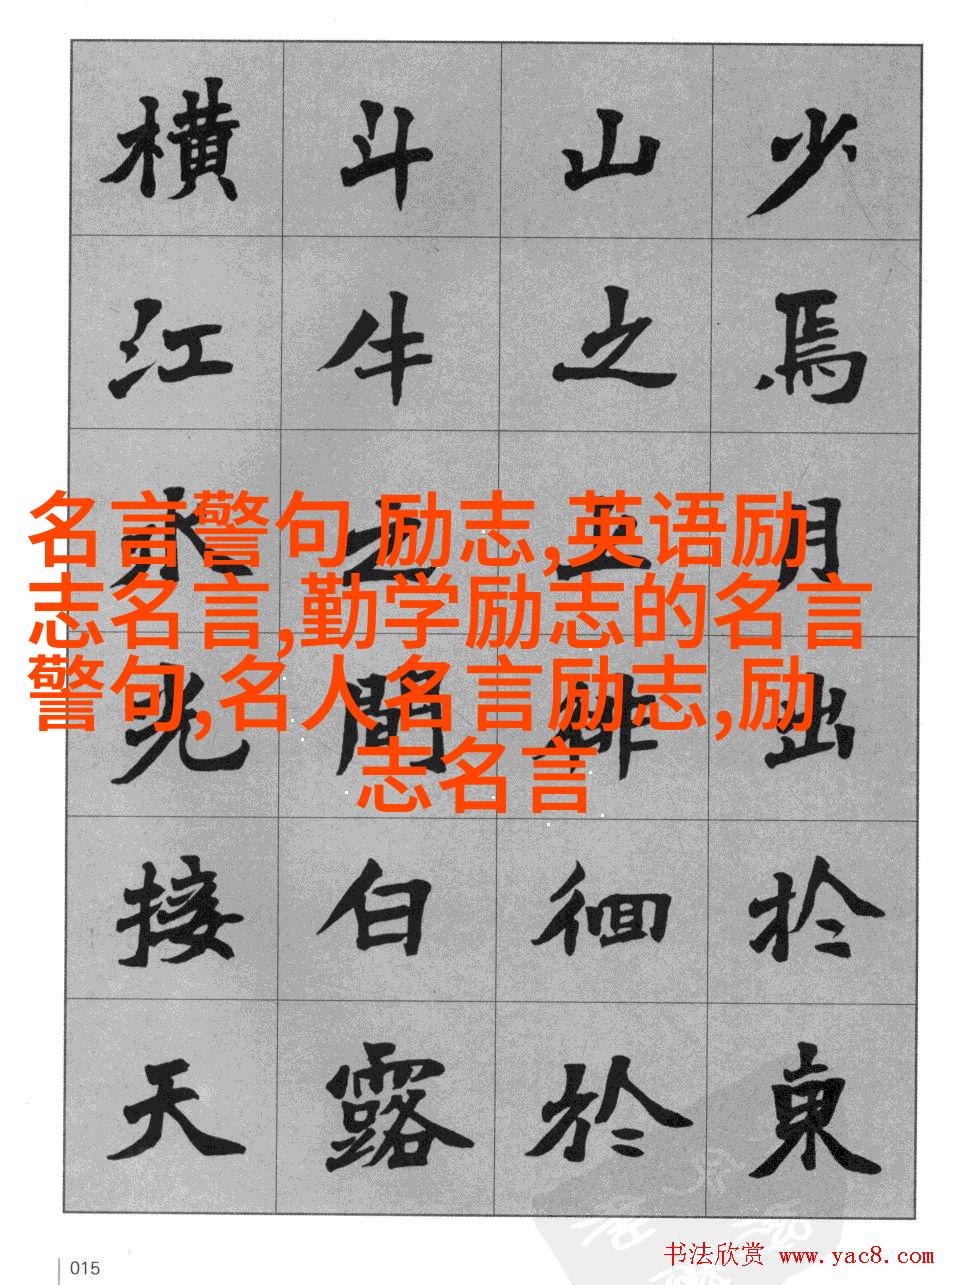 少焉月出於東
山之上徘徊於
斗牛之間白露
橫江水光接天
名言警句 励志,英语励
志名言,勤学励志的名言
警句,名人名言励志,励
志名言
015
书法欣赏 www.yac8.com